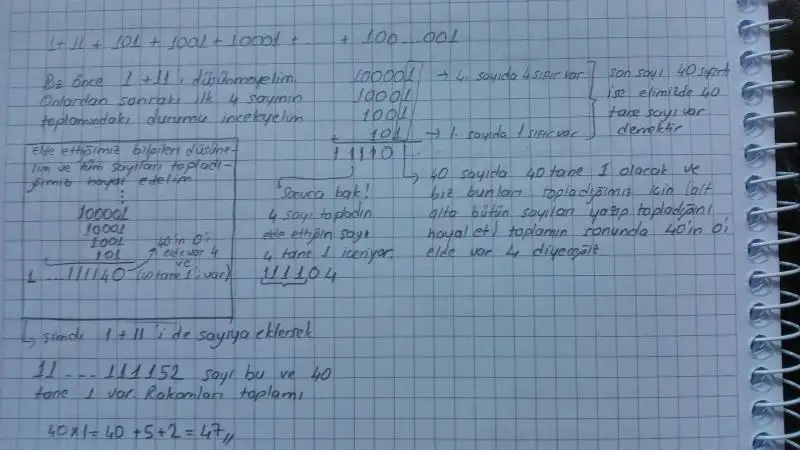 1 + 11 + 101 + 1001 + 10001 + ..... + 100...001
Biz önce 1 + 11'i düşünmeyelim.
Onlardan sonraki ilk 4 sayının
toplamındaki durumu inceleyelim
100001 → 4. sayıda 4 sıfır var
10001
1001
+ 101 → 1. sayıda 1 sıfır var
11110
son sayı 40 sıfırlı
ise elimizde 40
tane sayı var
demektir
elde ettiğimiz bilgileri düşüne-
lim ve tüm sayıları topladı-
ğımızı hayal edelim
⋮
100001
10001
1001
+ 101
40'ın 0'ı
elde var 4
ve
1...111140 (40 tane 1 var)
Sonuca bak!
4 sayı topladın
elde ettiğin sayı
4 tane 1 içeriyor.
111104
↳ 40 sayıda 40 tane 1 olacak ve
biz bunları topladığımız için (alt
alta bütün sayıları yazıp topladığını
hayal et) toplamın sonunda 40'ın 0'ı
elde var 4 diyeceğiz
↳ şimdi 1 + 11'i de sayıya eklersek
11...111152 sayı bu ve 40
tane 1 var. Rakamları toplamı
40x1 = 40 + 5 + 2 = 47,,